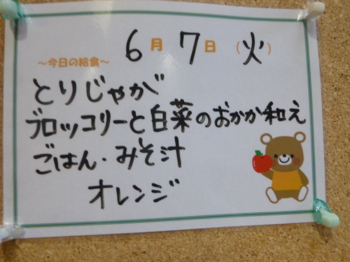 6月7日(火)
～今日の給食～
とりじゃが
ブロッコリーと白菜のおかか和え
ごはん・みそ汁
オレンジ